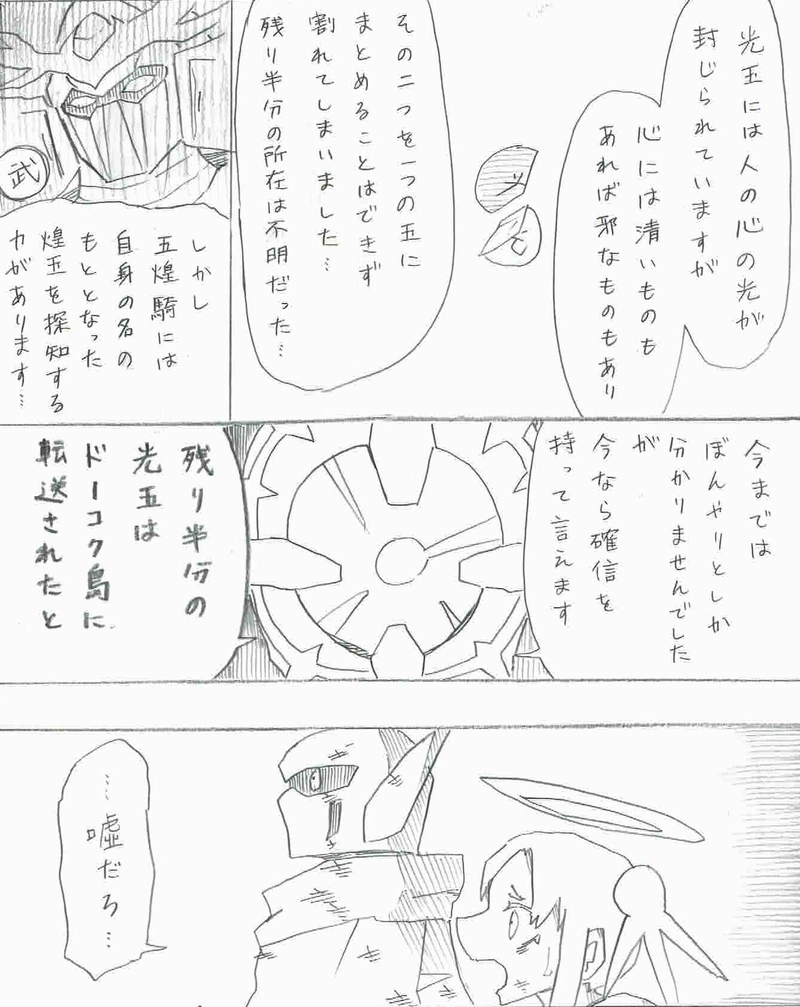 光玉には人の心の光が
封じられていますが
心には清いものも
あれば邪なものもあり
その二つを一つの玉に
まとめることはできず
割れてしまいました…
残り半分の所在は不明だった…
武
しかし
五煌騎には
自身の名の
もととなった
煌玉を探知する
力があります…
今までは
ぼんやりとしか
分かりませんでした
が
今なら確信を
持って言えます
残り半分の
光玉は
ドーコク島に
転送されたと
…嘘だろ…